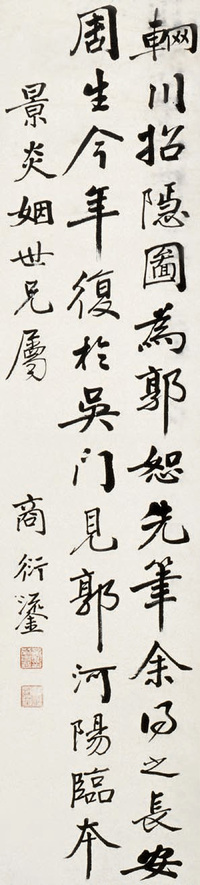 輞川招隱圖為郭恕先筆余得之長安
周生今年復於吳門見郭河陽臨本
景炎姻世兄屬
商衍鎏